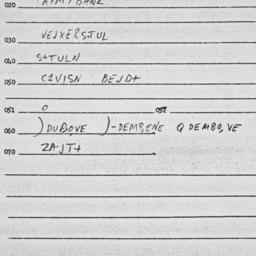 020
030 VEJXERSTUL
040 S+TULN
050 C1VISN BEJD+
051 0 052
060 )DUBOVE )-DEMBENE Q DEMBO,VE
070 ZAJT+